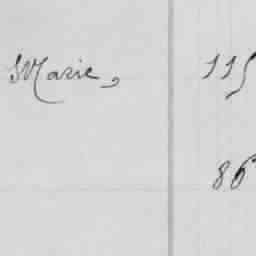 Marie, 115
86